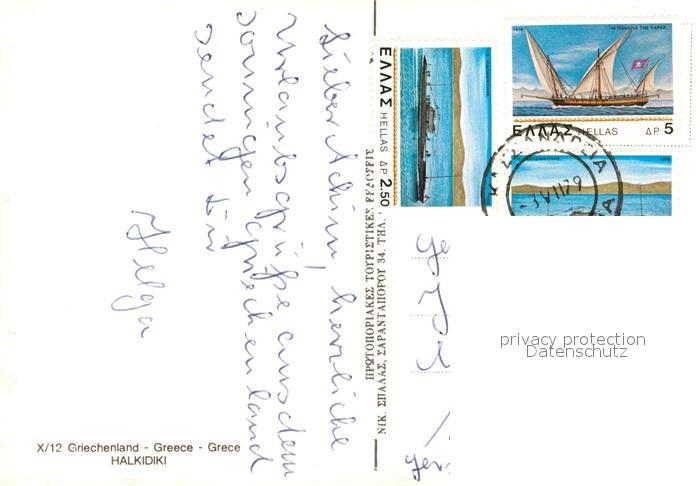 Lieber Achim, herzliche
Urlaubsgrüße aus dem
sonnigen Griechenland
sendet Dir
Helga
X/12 Griechenland - Greece - Grece
HALKIDIKI
ΠΡΩΤΟΠΟΡΙΑΚΕΣ ΤΟΥΡΙΣΤΙΚΕΣ
ΝΙΚ. ΣΠΑΛΑΣ, ΣΑΡΑΝΤΑΠΟΡΟΥ 34, ΤΗΛ.
ΕΛΛΑΣ HELLAS ΔΡ 2.50
1978
ΕΛΛΑΣ HELLAS ΔΡ 5
1978
ΚΑΣΣΑΝΔΡΕΙΑ
privacy protection
Datenschutz